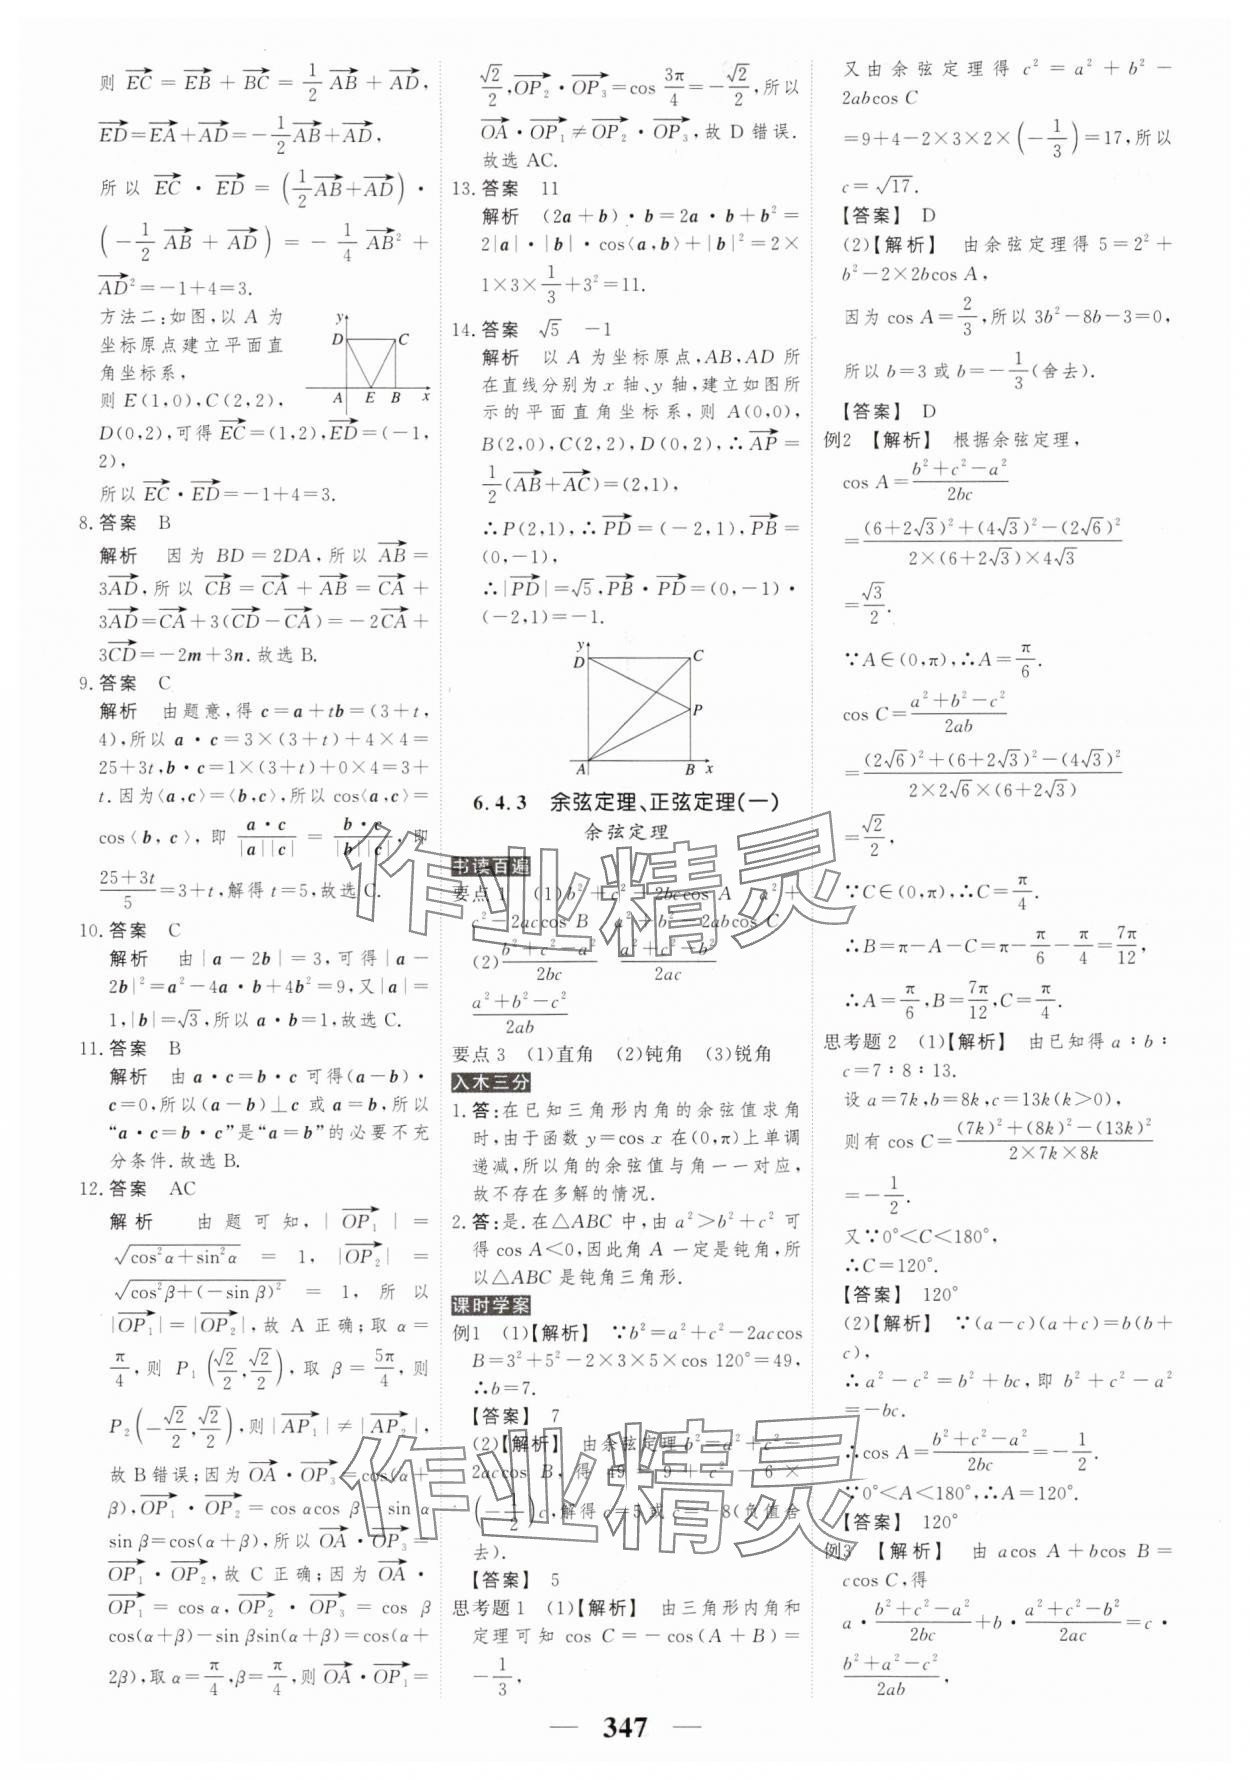 则 EC = EB + BC = 1/2 AB + AD,
ED=EA+AD=-1/2 AB+AD,
所以 EC · ED = (1/2 AB+AD) ·
(-1/2 AB + AD) = -1/4 AB² +
AD²=-1+4=3.
方法二:如图,以 A 为
坐标原点建立平面直
角坐标系,
则 E(1,0),C(2,2),
y D C A E B x
D(0,2),可得 EC=(1,2),ED=(-1,
2),
所以 EC·ED=-1+4=3.
8.答案 B
解析 因为 BD=2DA,所以 AB=
3AD,所以 CB=CA+AB=CA+
3AD=CA+3(CD-CA)=-2CA+
3CD=-2m+3n.故选 B.
9.答案 C
解析 由题意,得 c=a+tb=(3+t,
4),所以 a·c=3×(3+t)+4×4=
25+3t,b·c=1×(3+t)+0×4=3+
t.因为⟨a,c⟩=⟨b,c⟩,所以 cos⟨a,c⟩=
cos⟨b,c⟩,即 a·c/|a||c| = b·c/|b||c|,即
(25+3t)/5=3+t,解得 t=5,故选 C.
10.答案 C
解析 由|a-2b|=3,可得|a-
2b|²=a²-4a·b+4b²=9,又|a|=
1,|b|=√3,所以 a·b=1,故选 C.
11.答案 B
解析 由 a·c=b·c 可得(a-b)·
c=0,所以(a-b)⊥c 或 a=b,所以
“a·c=b·c”是“a=b”的必要不充
分条件.故选 B.
12.答案 AC
解析 由题可知,|OP₁|=
√(cos²α+sin²α) = 1, |OP₂| =
√(cos²β+(-sin β)²) = 1, 所以
|OP₁|=|OP₂|,故 A 正确;取 α=
π/4,则 P₁(√2/2,√2/2),取 β=5π/4,则
P₂(-√2/2,√2/2),则|AP₁|≠|AP₂|,
故 B 错误;因为 OA·OP₃=cos(α+
β),OP₁·OP₂=cos αcos β-sin α
sin β=cos(α+β),所以 OA·OP₃=
OP₁·OP₂,故 C 正确;因为 OA·
OP₁=cos α,OP₂·OP₃=cos β
cos(α+β)-sin βsin(α+β)=cos(α+
2β),取 α=π/4,β=π/4,则 OA·OP₁=
√2/2,OP₂·OP₃=cos 3π/4=-√2/2,所以
OA·OP₁≠OP₂·OP₃,故 D 错误.
故选 AC.
13.答案 11
解析 (2a+b)·b=2a·b+b²=
2|a|·|b|·cos⟨a,b⟩+|b|²=2×
1×3×1/3+3²=11.
14.答案 √5 -1
解析 以 A 为坐标原点,AB,AD 所
在直线分别为 x 轴、y 轴,建立如图所
示的平面直角坐标系,则 A(0,0),
B(2,0),C(2,2),D(0,2),∴AP=
1/2(AB+AC)=(2,1),
∴P(2,1),∴PD=(-2,1),PB=
(0,-1),
∴|PD|=√5,PB·PD=(0,-1)·
(-2,1)=-1.
y D C P A B x
6.4.3 余弦定理、正弦定理(一)
余弦定理
书读百遍
要点 1 (1)b²+c²-2bccos A a²+
c²-2accos B a²+b²-2abcos C
(2)(b²+c²-a²)/2bc (a²+c²-b²)/2ac
(a²+b²-c²)/2ab
要点 3 (1)直角 (2)钝角 (3)锐角
入木三分
1.答:在已知三角形内角的余弦值求角
时,由于函数 y=cos x 在(0,π)上单调
递减,所以角的余弦值与角一一对应,
故不存在多解的情况.
2.答:是.在△ABC 中,由 a²>b²+c² 可
得 cos A<0,因此角 A 一定是钝角,所
以△ABC 是钝角三角形.
课时学案
例1 (1)【解析】 ∵b²=a²+c²-2accos
B=3²+5²-2×3×5×cos 120°=49,
∴b=7.
【答案】 7
(2)【解析】 由余弦定理 b²=a²+c²-
2accos B,得 49=9+c²-6×
(-1/2)c,解得 c=5 或 c=-8(负值舍
去).
【答案】 5
思考题 1 (1)【解析】 由三角形内角和
定理可知 cos C=-cos(A+B)=
-1/3,
又由余弦定理得 c²=a²+b²-
2abcos C
=9+4-2×3×2×(-1/3)=17,所以
c=√17.
【答案】 D
(2)【解析】 由余弦定理得 5=2²+
b²-2×2bcos A,
因为 cos A=2/3,所以 3b²-8b-3=0,
所以 b=3 或 b=-1/3(舍去).
【答案】 D
例2 【解析】 根据余弦定理,
cos A=(b²+c²-a²)/2bc
=((6+2√3)²+(4√3)²-(2√6)²)/(2×(6+2√3)×4√3)
=√3/2.
∵A∈(0,π),∴A=π/6.
cos C=(a²+b²-c²)/2ab
=((2√6)²+(6+2√3)²-(4√3)²)/(2×2√6×(6+2√3))
=√2/2,
∵C∈(0,π),∴C=π/4.
∴B=π-A-C=π-π/6-π/4=7π/12,
∴A=π/6,B=7π/12,C=π/4.
思考题 2 (1)【解析】 由已知得 a∶b∶
c=7∶8∶13.
设 a=7k,b=8k,c=13k(k>0),
则有 cos C=((7k)²+(8k)²-(13k)²)/(2×7k×8k)
=-1/2.
又∵0°<C<180°,
∴C=120°.
【答案】 120°
(2)【解析】 ∵(a-c)(a+c)=b(b+
c),
∴a²-c²=b²+bc,即 b²+c²-a²
=-bc.
∴cos A=(b²+c²-a²)/2bc=-1/2.
∵0°<A<180°,∴A=120°.
【答案】 120°
例3 【解析】 由 acos A+bcos B=
ccos C,得
a·(b²+c²-a²)/2bc+b·(a²+c²-b²)/2ac=c·
(b²+a²-c²)/2ab,
347
作业精灵
作业精灵